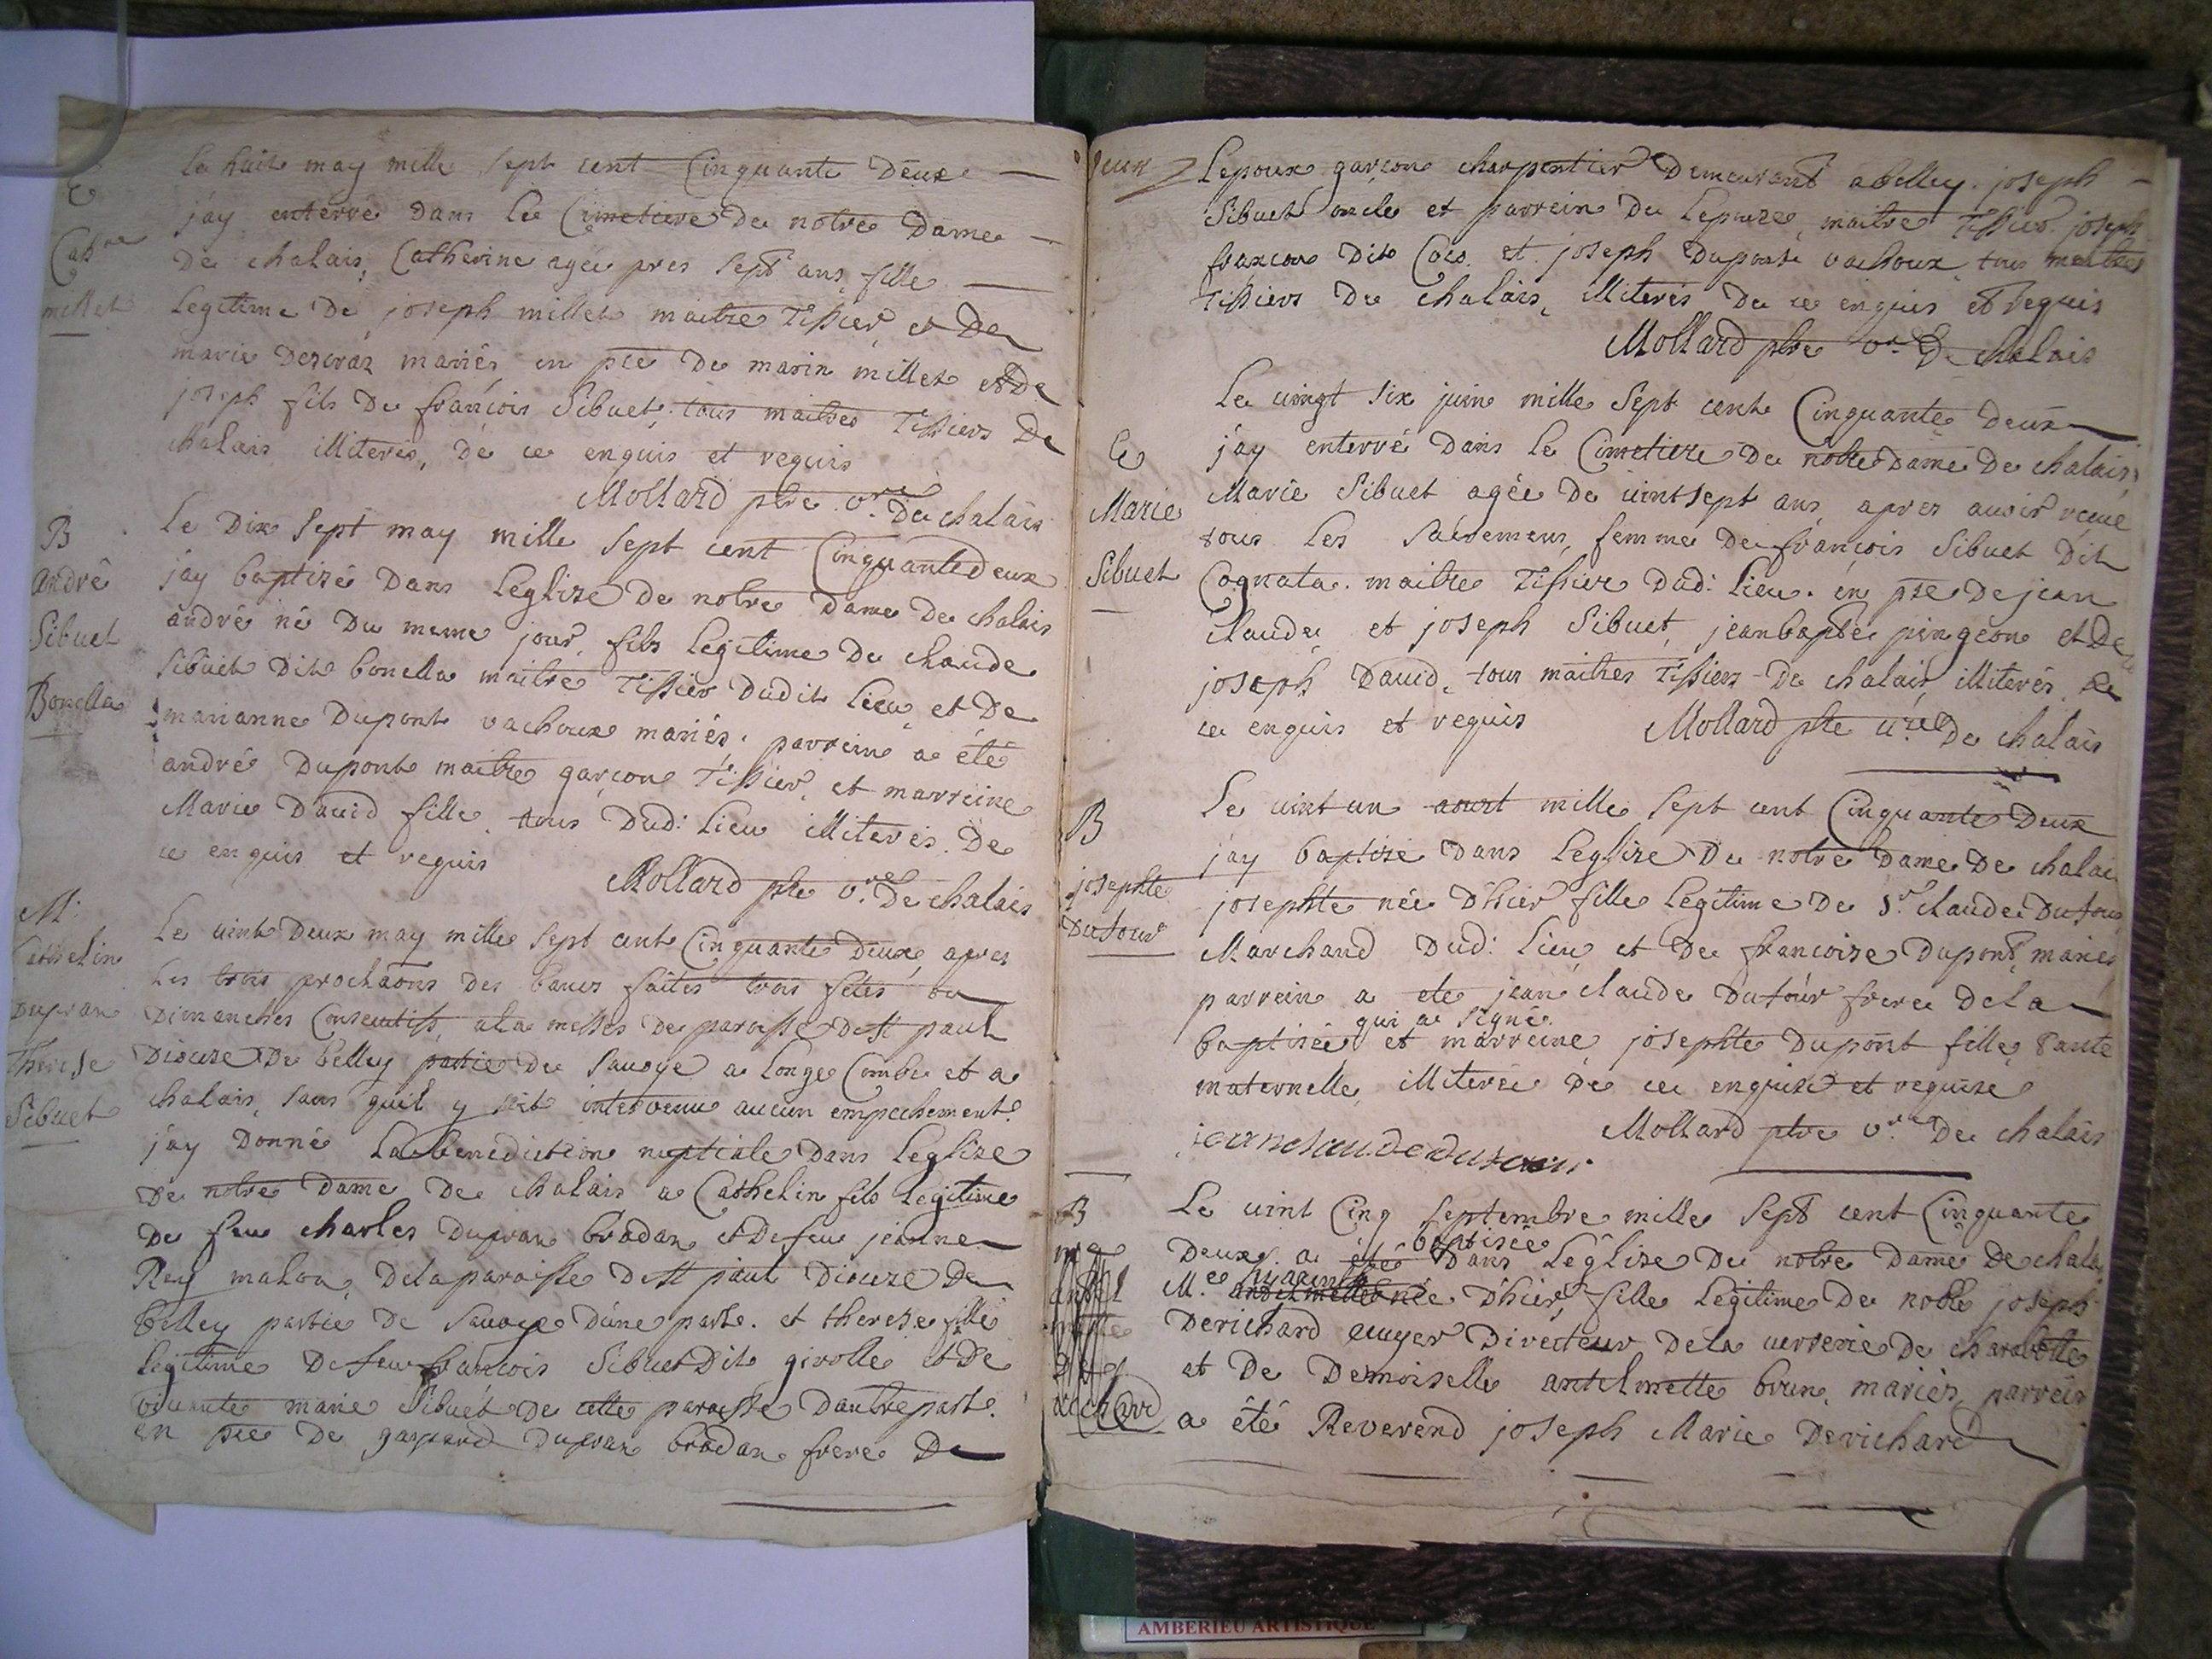 E
Cath.ne
millet
Le huit may mille sept cent Cinquante Deux
j'ay enterré dans le Cimetiere de notre Dame
De chalais, Catherine agée pres sept ans, fille
Legitime De joseph millet maitre Tissier, et De
marie mariés en pce De marin millet et De
joseph fils De françois Sibuet, tous maitres Tissiers De
chalais illiterés, de ce enquis et requis
Mollard ptre v.re De chalais
B
andré
Sibuet
Bonella
Le Dix Sept may mille Sept cent Cinquante Deux
j'ay baptizé Dans Leglize De notre Dame De chalais
andré né Du meme jour, fils Legitime De claude
Sibuet Dit bonella maitre Tissier Dudit Lieu, et De
marianne Dupont vachoux mariés, parrein a été
andré Dupont maitre garçon Tissier, et marreine
Marie David fille, tous Dud: Lieu illiterés. De
ce enquis et requis
Mollard ptre v.re De chalais
M:
Cathelin
Dupran
Therese
Sibuet
Le vint Deux may mille sept cent Cinquante Deux, apres
Les trois proclaõns Des bancs faites trois fêtes ou
Dimanches Consecutifs, a La messes De paroisse De St paul
Dioceze De belley partie De Savoye a Longe Combe et a
chalais, sans quil y soit intervenu aucun empechement
j'ay Donné La benediction nuptiale Dans Leglize
De notre Dame De chalais a Cathelin fils Legitime
De feu charles Dupran bradan et De feu jeanne
Rey De la paroisse De St paul Dioceze De
Belley partie De Savoye D'une part. et therese fille
Legitime De feu francois Sibuet Dit girolle et De
vivante marie Sibuet De cette paroisse Dautre part.
en pce De gaspard Dupran bradan frere De
Lepoux garçon charpentier Demeurant a belley. joseph
Sibuet oncle et parrein De Lepouze, maitre Tissier joseph
francon Dit Coco. et joseph Dupont vachoux tous maitres
Tissiers De chalais, illiterés De ce enquis et requis
Mollard ptre v.re De chalais
E
Marie
Sibuet
Le vingt six juin mille Sept cent Cinquante Deux
j'ay enterré Dans Le Cimetiere De notre Dame De chalais,
Marie Sibuet agée De vint sept ans, apres avoir reçue
tous Les Sacremens, femme De françois Sibuet Dit
Cognata. maitre Tissier Dud: Lieu. en pce De jean
claude, et joseph Sibuet, jean bapte pingeon et De
joseph David, tous maitres Tissiers De chalais, illiterés De
ce enquis et requis
Mollard ptre v.re De chalais
B
josephte
Dutour
Le vint un aout mille sept cent Cinquante Deux
j'ay baptizé Dans Leglize De notre Dame De chalais
josephte née D'hier fille Legitime De S.r claude Dutour
Marchand Dud: Lieu et De francoise Dupont, mariés,
parrein a ete jean claude Dutour frere De la
qui a signé
baptisée et marreine josephte Dupont fille, Tante
maternelle, illiterée De ce enquise et requise
Mollard ptre v.re De chalais
jean claude dutour
B
Le vint Cinq Septembre mille Sept cent Cinquante
Deux a été baptisée Dans Léglise De notre Dame De chalais
M.e née D'hier, fille Legitime De noble joseph
Derichard ecuyer Directeur De la verrerie De charabotte
et De Demoiselle antelmette brun, mariés, parrein
a été Reverend joseph Marie Derichard
AMBERIEU ARTISTIQUE